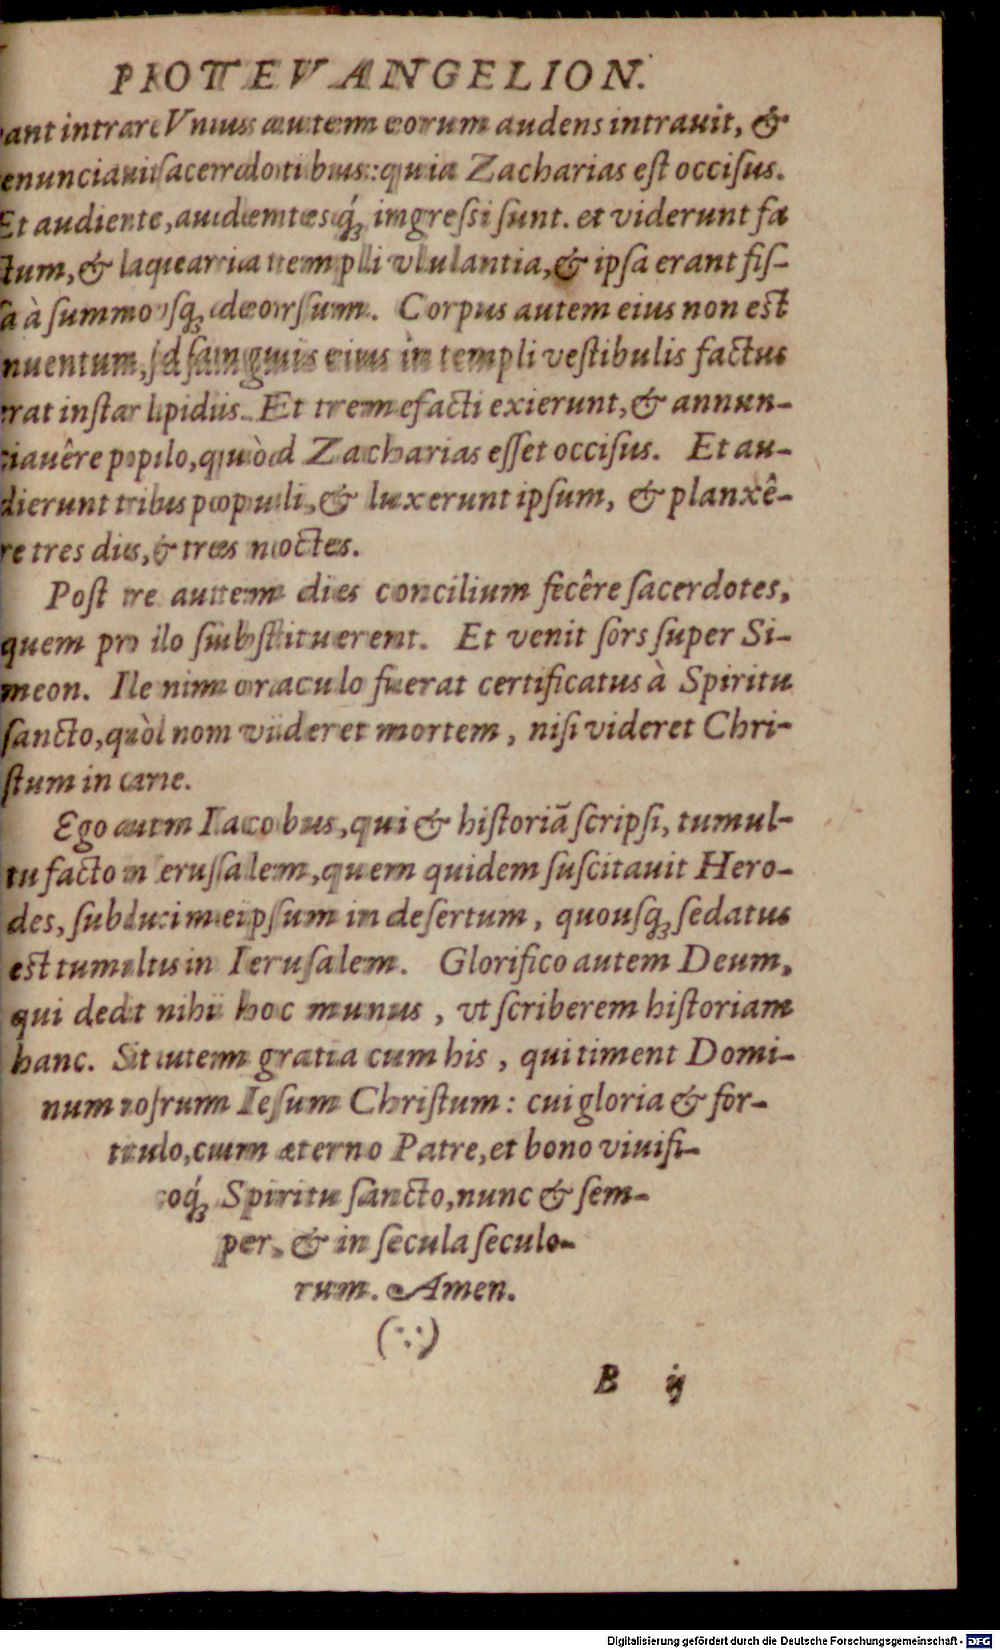 PROTEVANGELION.
bant intrare Vnus autem eorum audens intrauit, &
enunciauit sacerdotibus: quia Zacharias est occisus.
Et audiente, audientesq́; ingressi sunt. et viderunt fa
ctum, & laquearia templi vlulantia, & ipsa erant fis-
sa à summo vsq; deorsum. Corpus autem eius non est
inuentum, sed sanguis eius in templi vestibulis factus
erat instar lapidis. Et tremefacti exierunt, & annun-
ciauêre populo, quòd Zacharias esset occisus. Et au-
dierunt tribus populi, & luxerunt ipsum, & planxê-
re tres dies, & tres noctes.
Post tres autem dies concilium fecêre sacerdotes,
quem pro illo substituerent. Et venit sors super Si-
meon. Ille enim oraculo fuerat certificatus à Spiritu
sancto, quòd non videret mortem, nisi videret Chri-
stum in carne.
Ego autem Iacobus, qui & historiã scripsi, tumul-
tu facto in Ierusalem, quem quidem suscitauit Hero-
des, subduxi meipsum in desertum, quousq; sedatus
est tumultus in Ierusalem. Glorifico autem Deum,
qui dedit mihi hoc munus, vt scriberem historiam
hanc. Sit autem gratia cum his, qui timent Domi-
num nostrum Iesum Christum: cui gloria & for-
titudo, cum æterno Patre, et bono viuifi-
coq́; Spiritu sancto, nunc & sem-
per, & in secula seculo-
rum. Amen.
(∵)
B ij
Digitalisierung gefördert durch die Deutsche Forschungsgemeinschaft - DFG